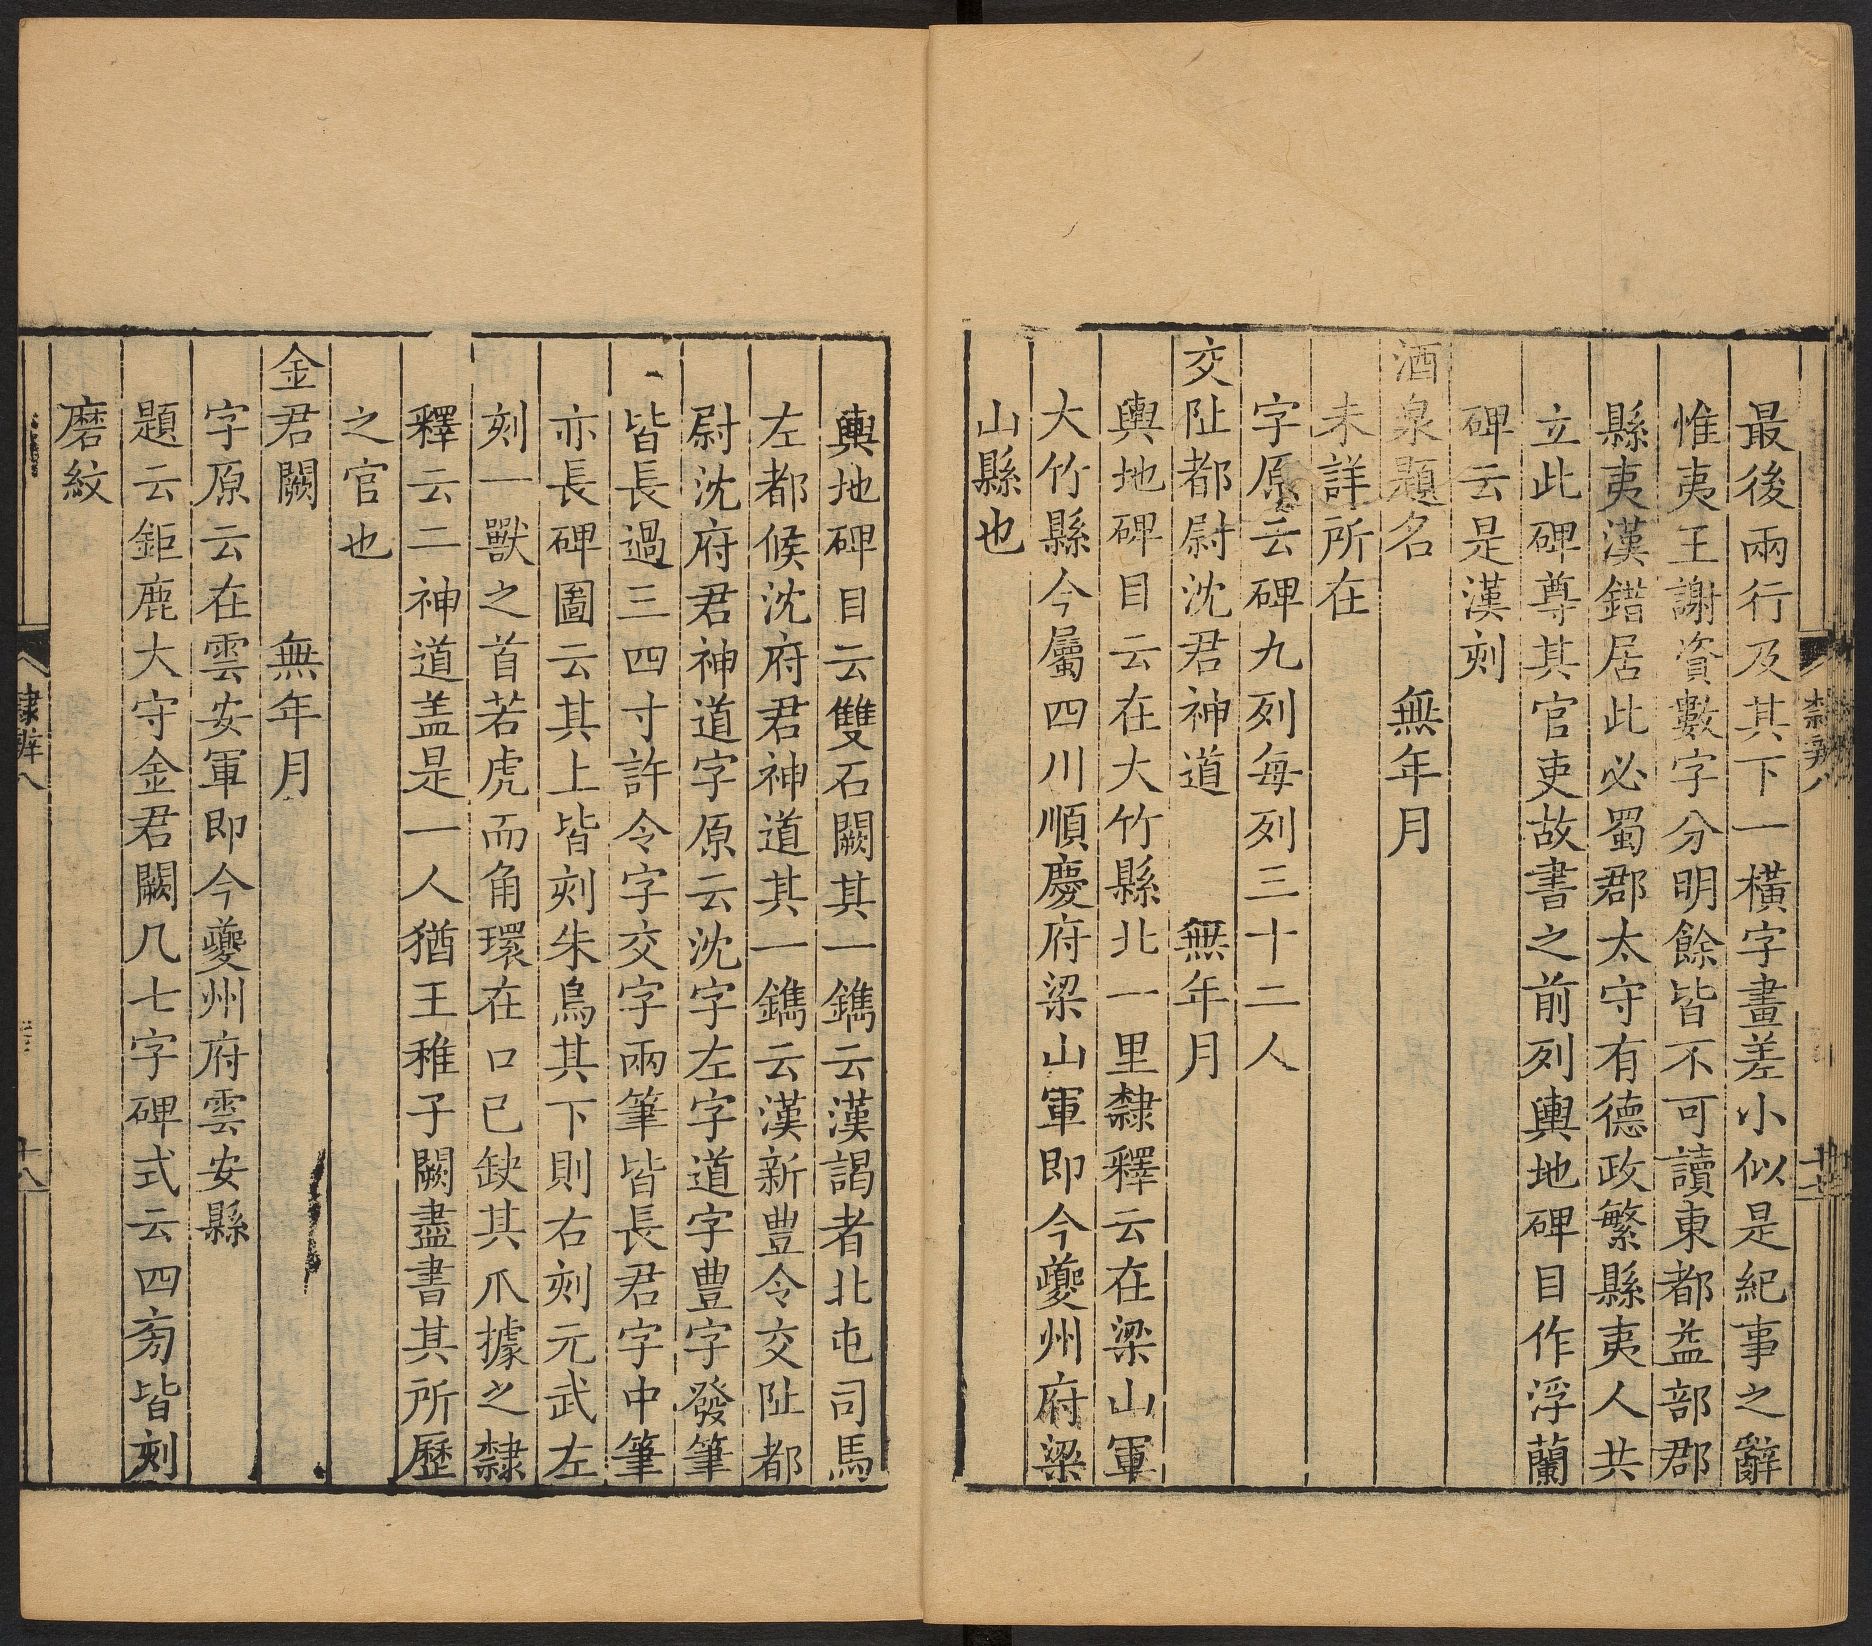 最後兩行及其下一橫字畫差小似是紀事之辭
惟夷王謝資數字分明餘皆不可讀東都益部郡
縣夷漢錯居此必蜀郡太守有德政繁縣夷人共
立此碑尊其官吏故書之前列輿地碑目作浮蘭
碑云是漢刻
酒泉題名 無年月
未詳所在
字原云碑九列每列三十二人
交阯都尉沈君神道 無年月
輿地碑目云在大竹縣北一里隸釋云在梁山軍
大竹縣今屬四川順慶府梁山軍即今夔州府梁
山縣也
輿地碑目云雙石闕其一鐫云漢謁者北屯司馬
左都候沈府君神道其一鐫云漢新豐令交阯都
尉沈府君神道字原云沈字左字道字豐字發筆
皆長過三四寸許令字交字兩筆皆長君字中筆
亦長碑圖云其上皆刻朱鳥其下則右刻元武左
刻一獸之首若虎而角環在口已缺其爪據之隸
釋云二神道盖是一人猶王稚子闕盡書其所歷
之官也
金君闕 無年月
字原云在雲安軍即今夔州府雲安縣
題云鉅鹿大守金君闕凡七字碑式云四旁皆刻
磨紋
隸辨八